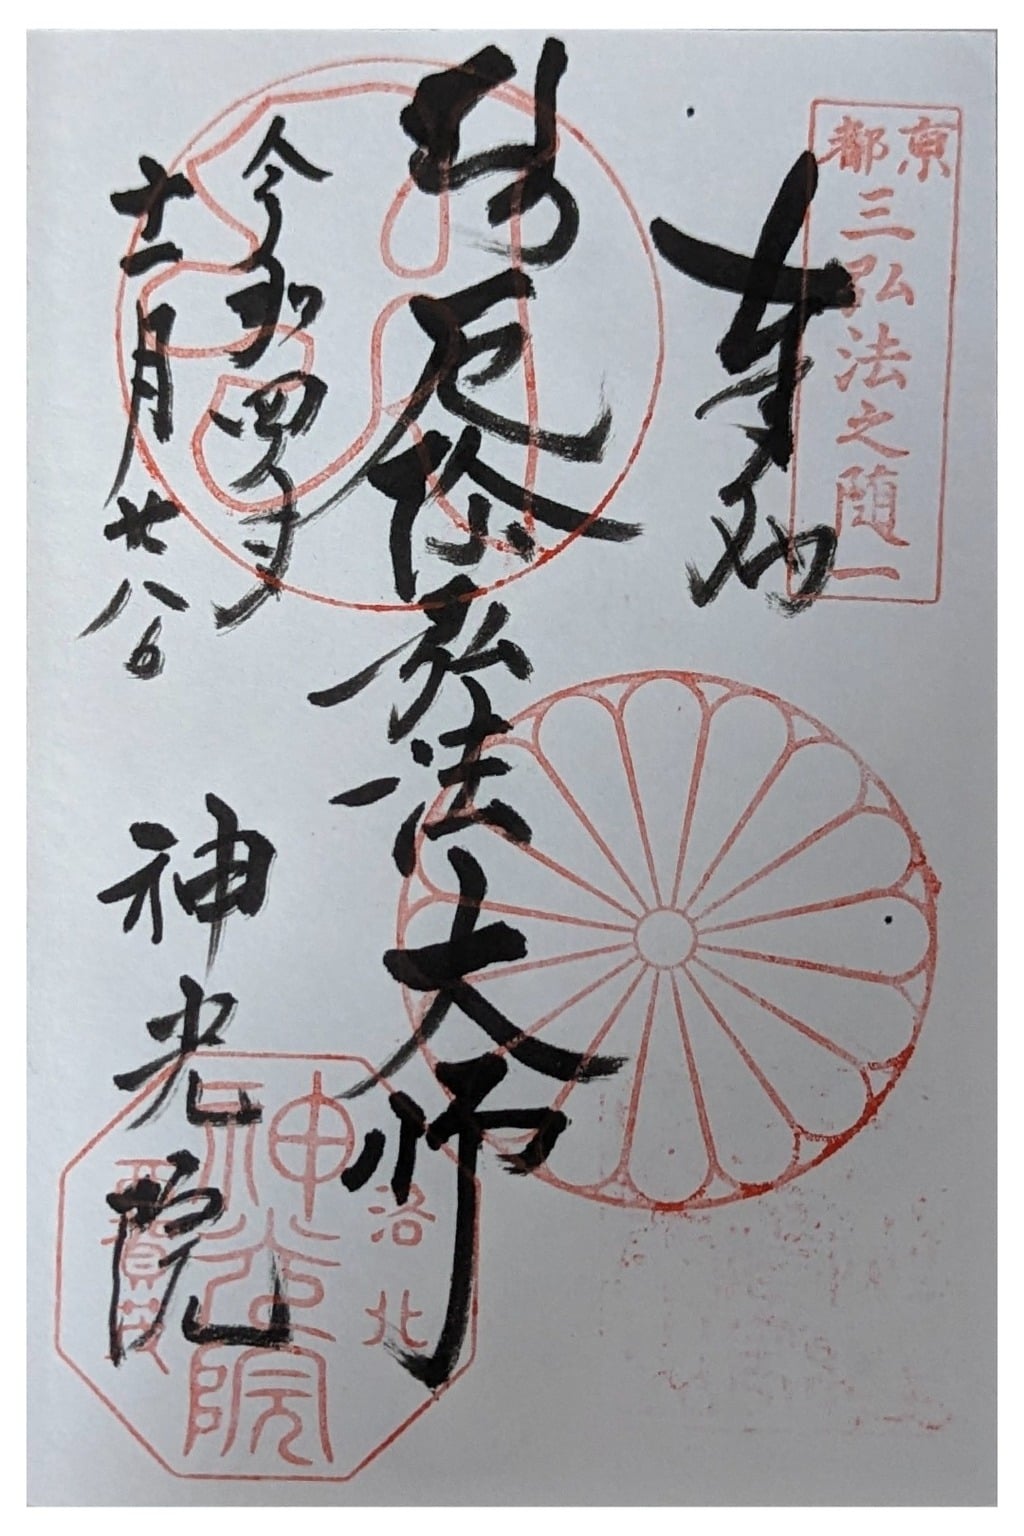 京都
三弘法之随一
奉拝
厄除弘法大師
令和四年
十二月廿八日
神光院
洛北
神光院
西賀茂